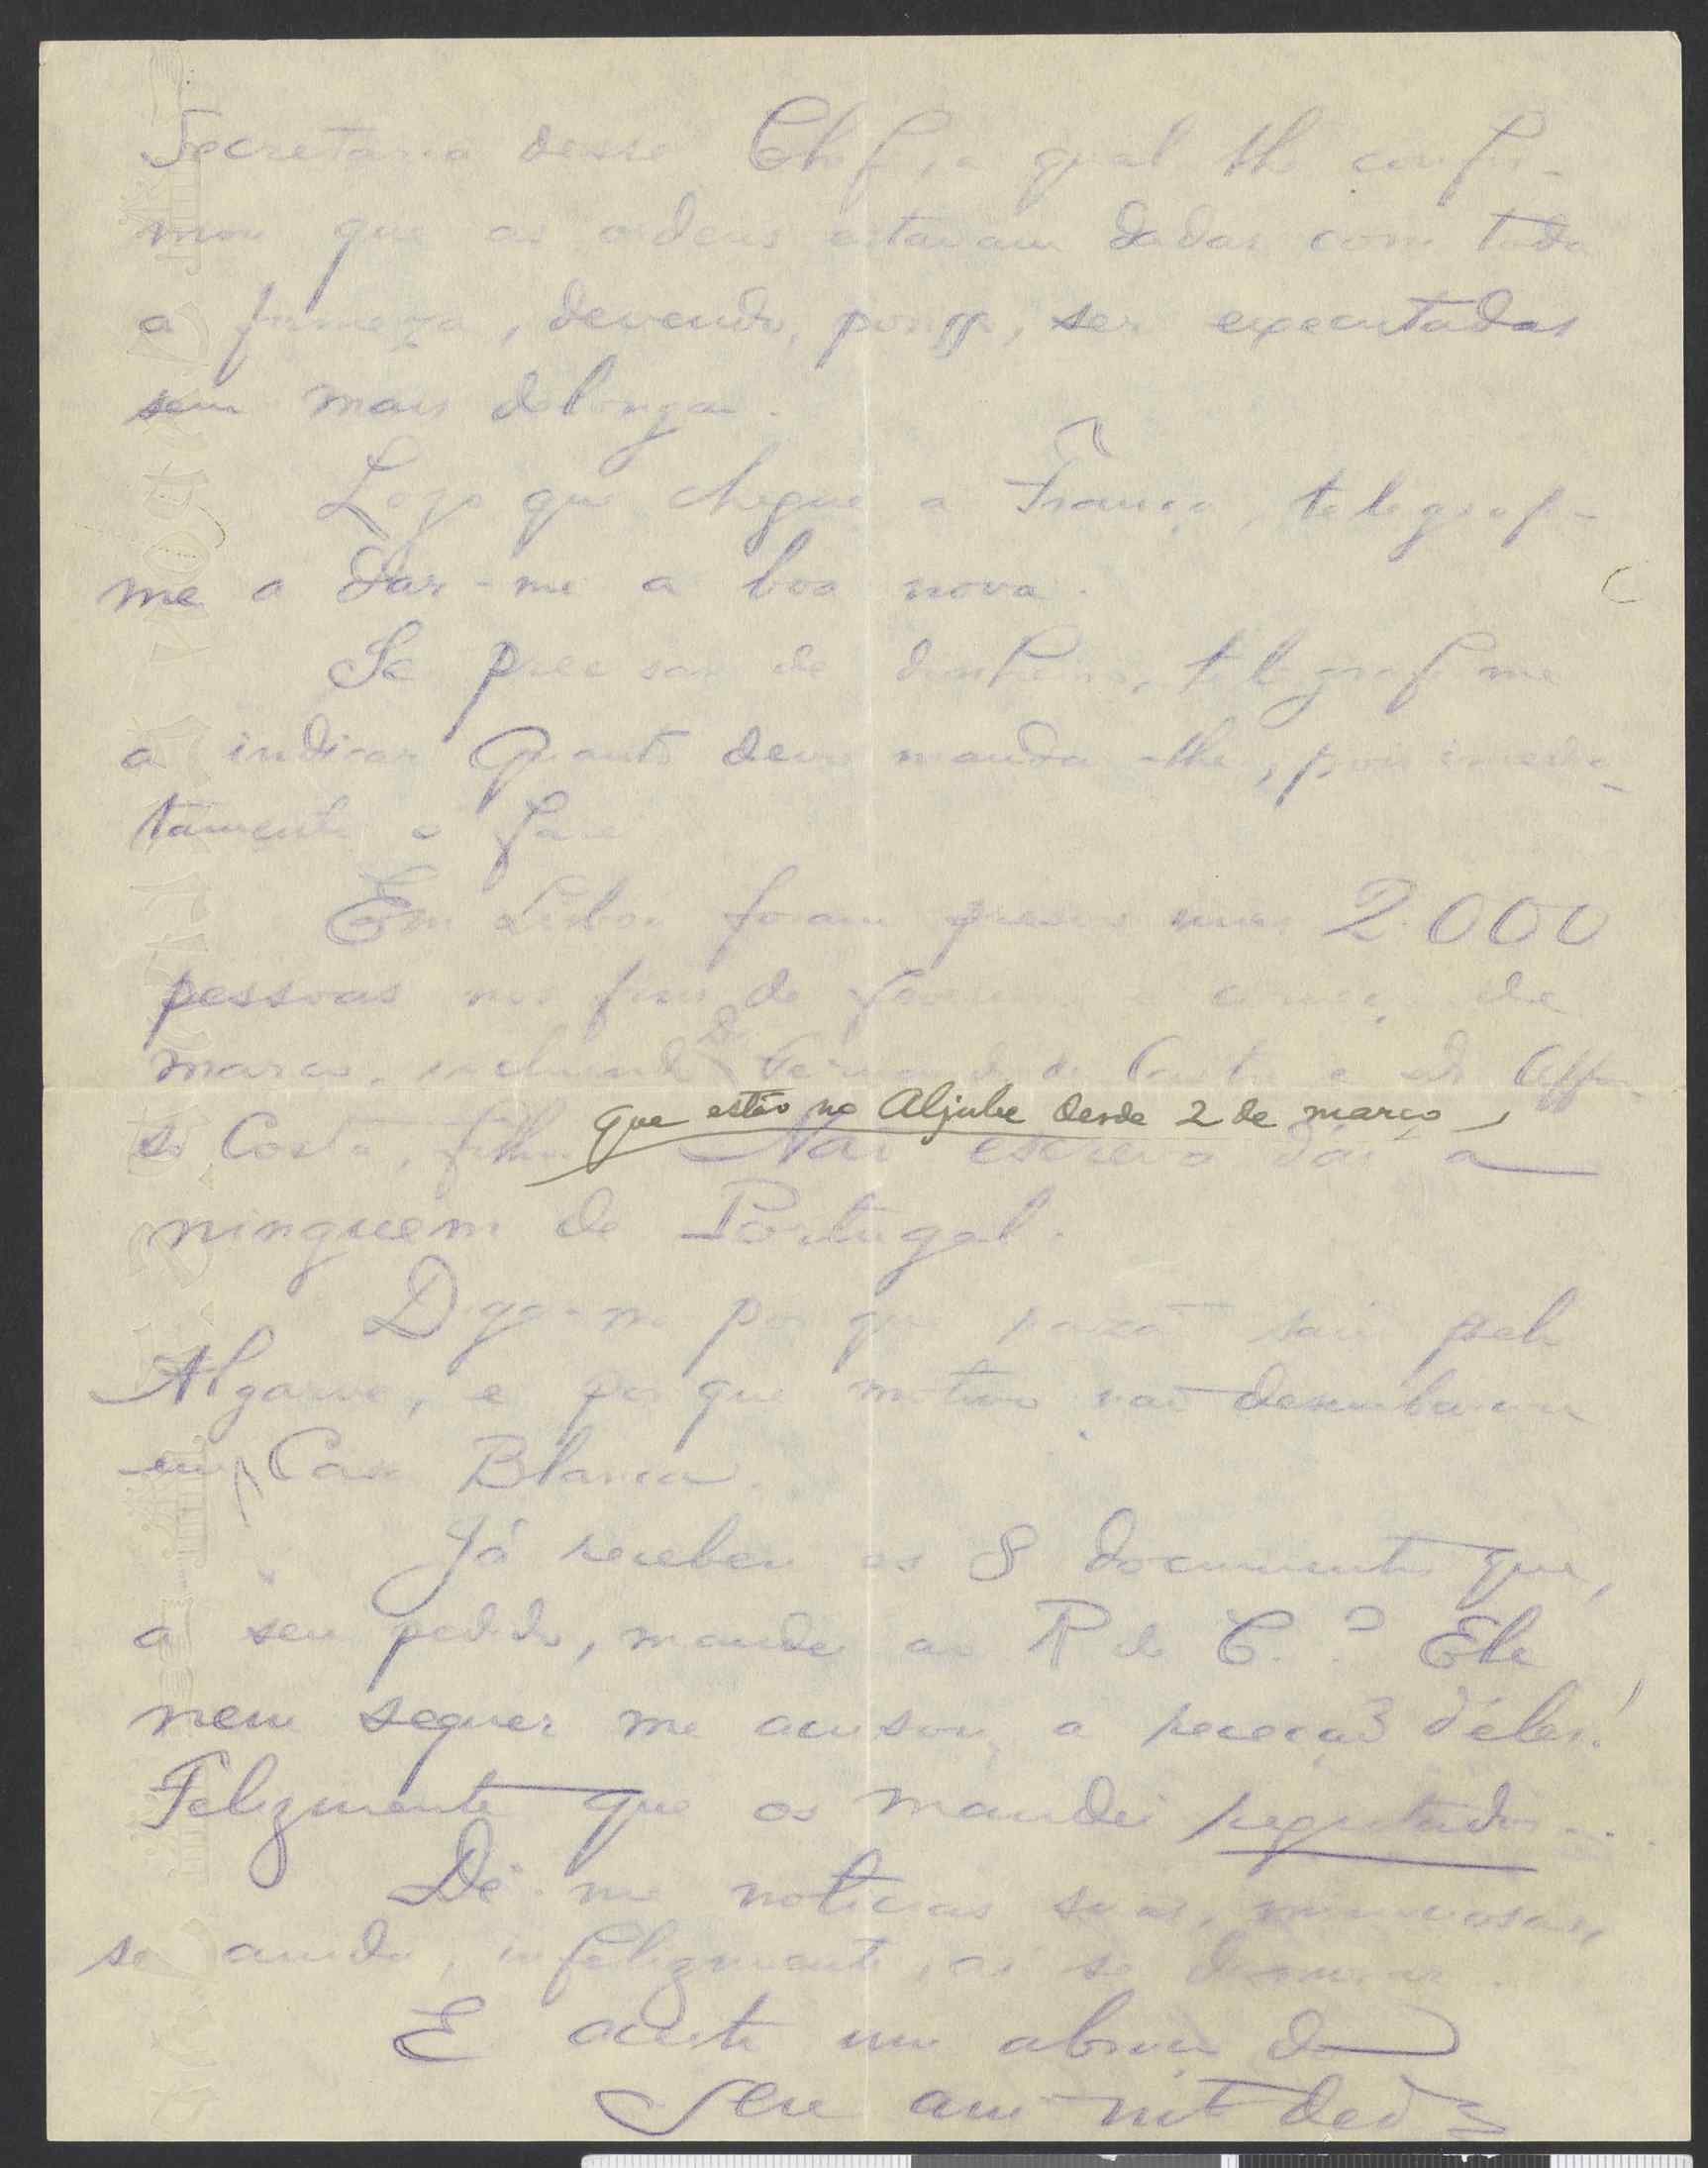 Secretaria desse Chefe, a qual lhe confir-
mou que as ordens estavam dadas com toda
a firmeza, devendo, porisso, ser executadas
sem mais delonga.
Logo que chegue a França, telegrafe-
me a dar-me a boa nova.
Se precisar de dinheiro, telegrafe-me
a indicar quanto devo mandar-lhe, pois imedia-
tamente o farei
Em Lisboa foram presos uns 2.000
pessoas nos fins de fevereiro e começo de
março, incluindo o Dr. da Costa e o dr. Affon-
so Costa, filho que estão no Aljube desde 2 de março,
Não escreva daí a
ninguem de Portugal.
Diga-me por que razão saiu pelo
Algarve, e por que motivo não desembarcou
em Casa Blanca.
Já recebeu os 8 documentos que,
a seu pedido, mandei ao R. de C.? Ele
nem sequer me acusou a recepção dêles!
Felizmente que os mandei registados...
Dê-me noticias suas, minuciosas,
se ainda, infelizmente, aí se demorar.
E aceite um abraço do
Seu am.º mt.º ded.º